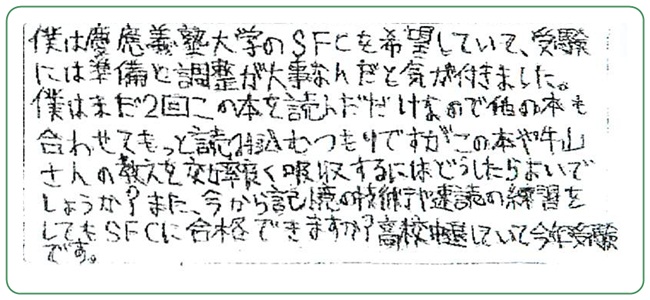 僕は慶應義塾大学のSFCを希望していて、受験
には準備と調整が大事なんだと気が付きました。
僕はまだ2回この本を読んだだけなので他の本も
合わせてもっと読み込むつもりですがこの本や牛山
さんの教えを効率良く吸収するにはどうしたらよいで
しょうか?また、今から記憶の技術や速読の練習を
してもSFCに合格できますか?高校中退していて今年受験
です。